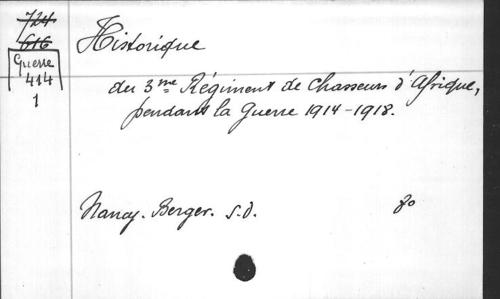 724
616
Guerre
414
1
Historique
du 3me Régiment de Chasseurs d'Afrique,
pendant la Guerre 1914-1918.
Nancy. Berger. s.d. 8o